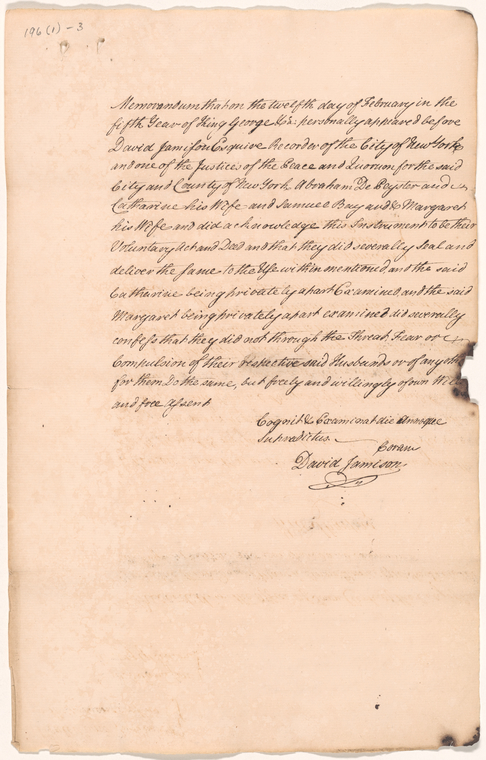 196 (1) - 3
Memorandum that on the twelfth day of February in the
fifth Year of King George &c: personally appeared before
David Jamison Esquire Recorder of the City of New York
and one of the Justices of the Peace and Quorum for the said
City and County of New York Abraham De Peyster and
Catharine his Wife and Samuel Bay and Margaret
his Wife and did acknowledge this Instrument to be their
Voluntary Act and Deed and that they did severally Seal and
deliver the same to the Use within mentioned and the said
Catharine being privately apart Examined and the said
Margaret being privately apart examined did severally
confess that they did not through the Threat Fear or
Compulsion of their respective said Husbands or of any oth
for them Do the same, but freely and willingly of own Will
and free Assent
Cognit & Examinat die Annoque
Supradictus
Coram
David Jamison